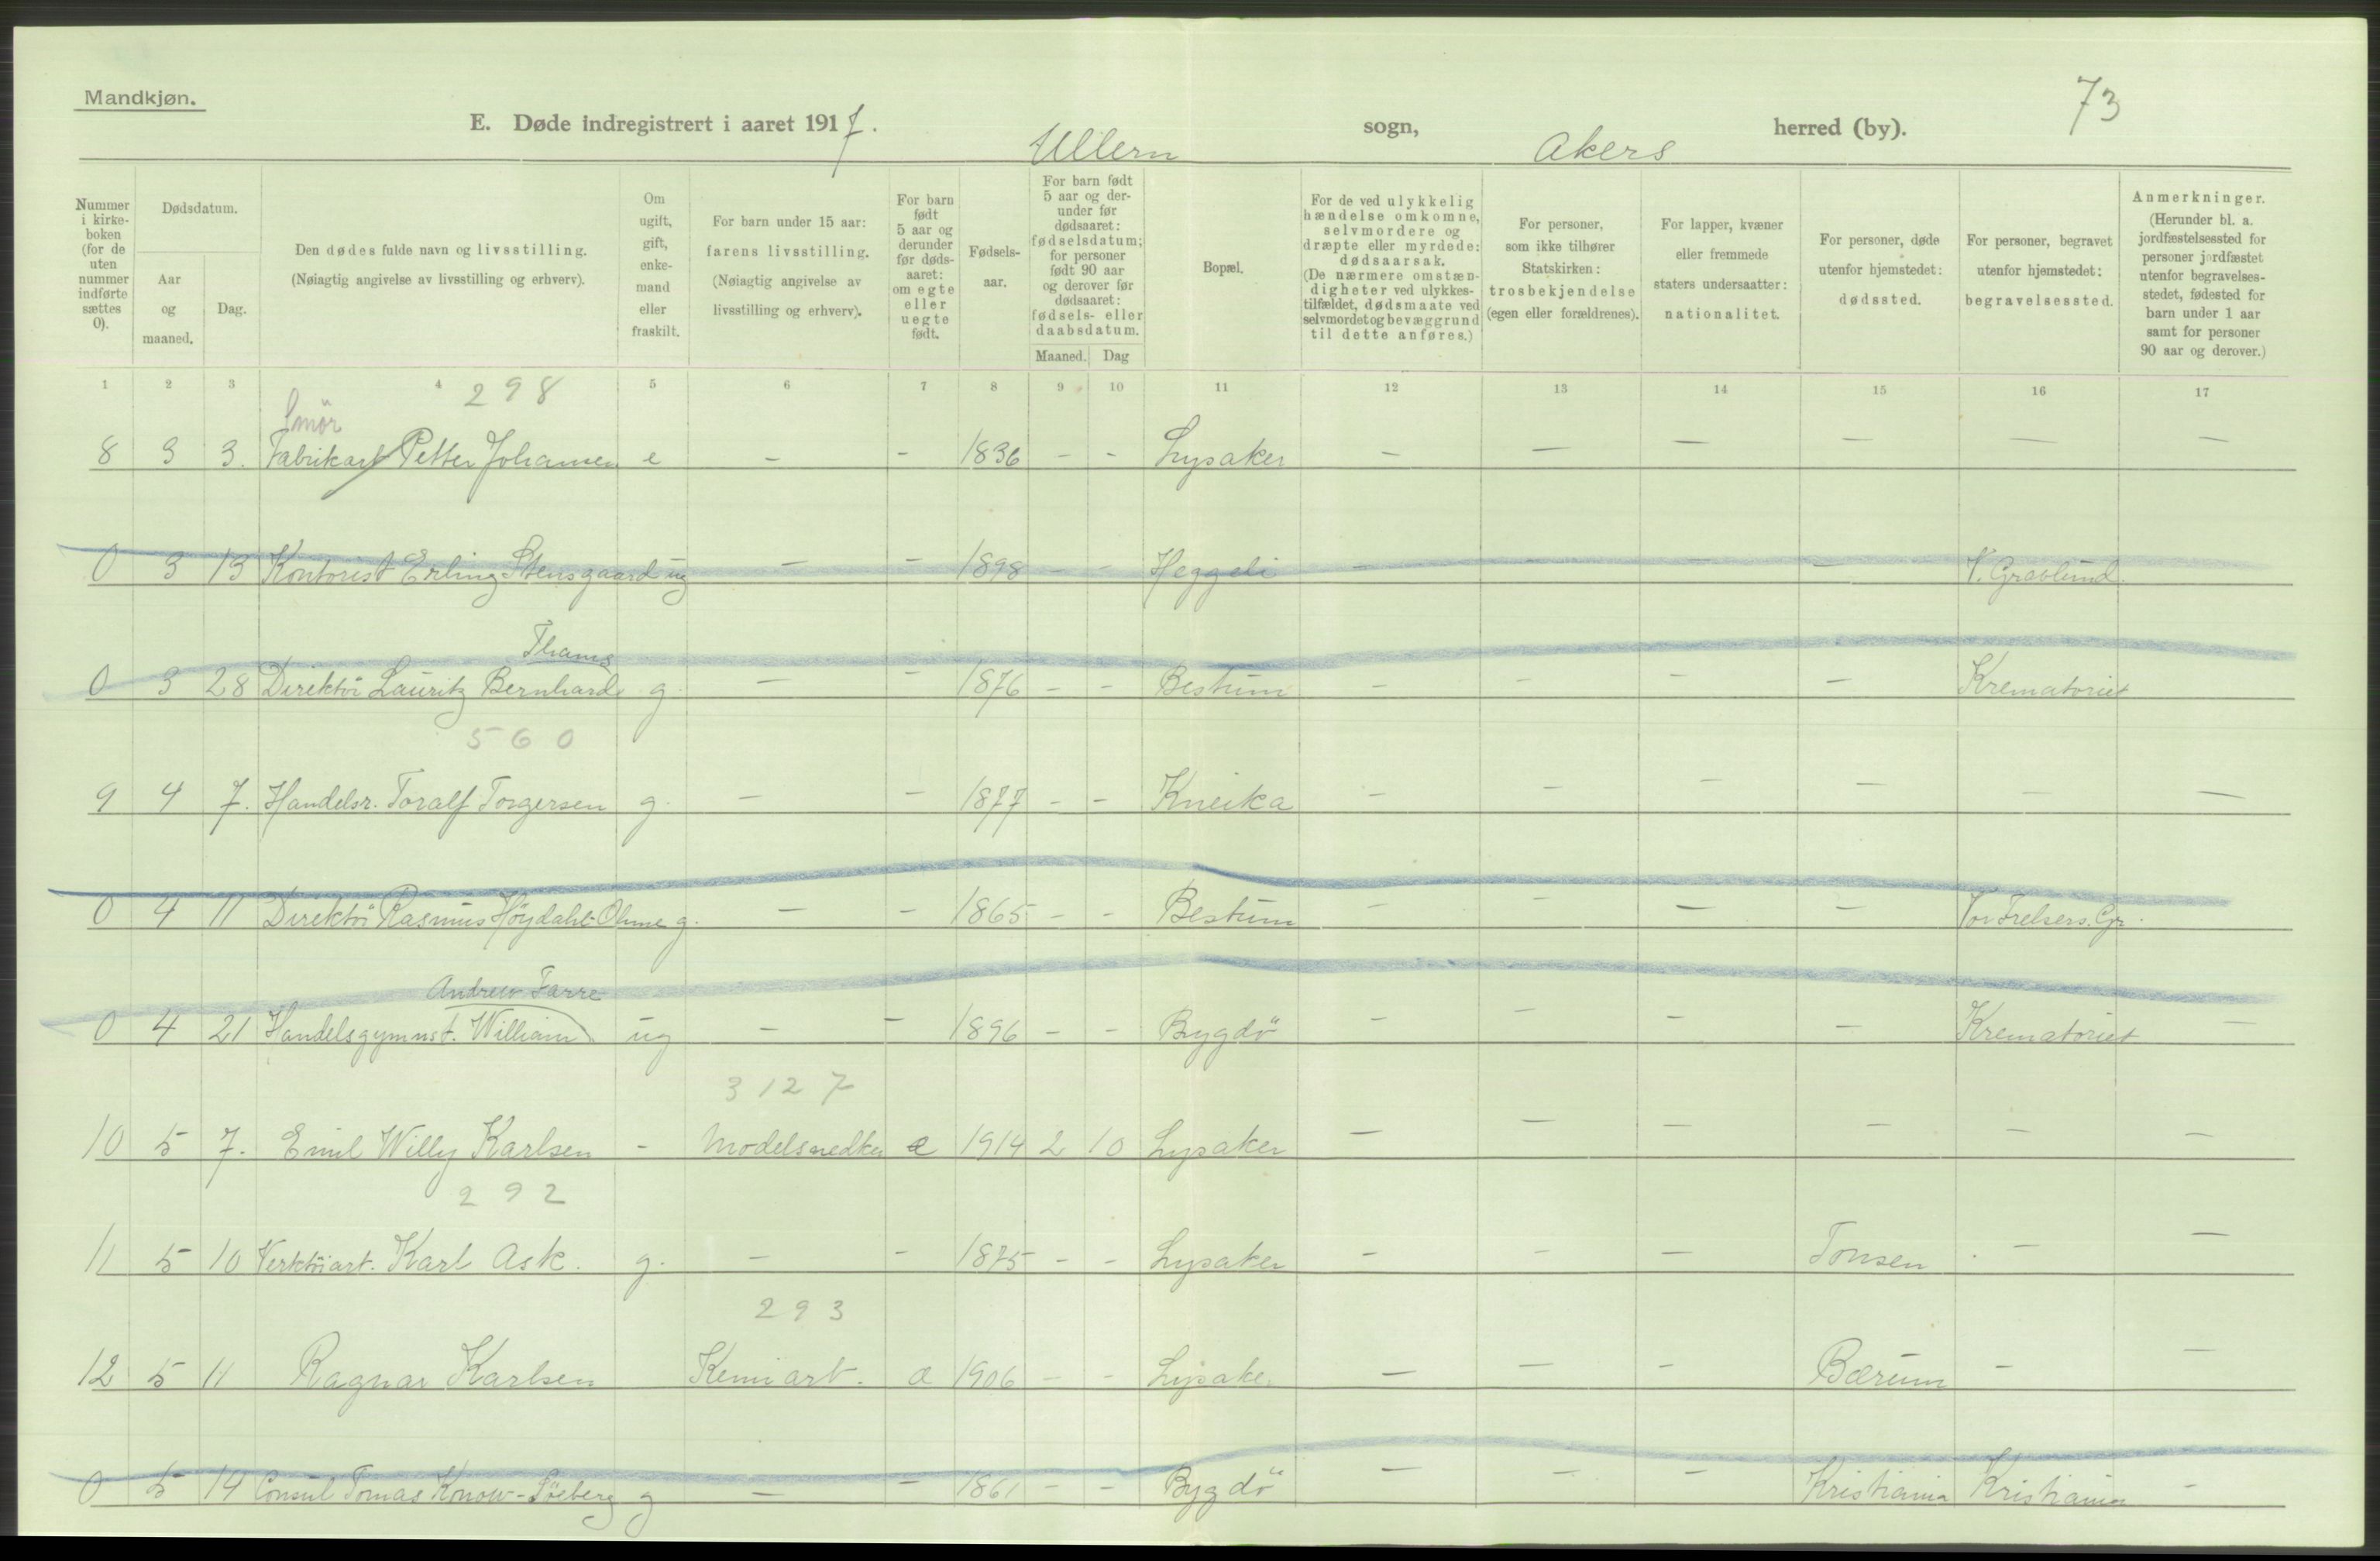 Mandkjøn.
73
E. Døde indregistrert i aaret 1917. Ullern sogn, Akers herred (by).
Nummer i kirke-boken (for de uten nummer indførte sættes 0).
Dødsdatum.
Aar og maaned.
Dag.
Den dødes fulde navn og livsstilling. (Nøiagtig angivelse av livsstilling og erhverv).
Om ugift, gift, enke-mand eller fraskilt.
For barn under 15 aar: farens livsstilling. (Nøiagtig angivelse av livsstilling og erhverv).
For barn født 5 aar og derunder før døds-aaret: om egte eller uegte født.
Fødsels-aar.
For barn født 5 aar og der-under før dødsaaret: fødselsdatum; for personer født 90 aar og derover før dødsaaret: fødsels- eller daabsdatum.
Maaned. Dag
Bopæl.
For de ved ulykkelig hændelse omkomne, selvmordere og dræpte eller myrdede: dødsaarsak. (De nærmere omstæn-digheter ved ulykkes-tilfældet, dødsmaate ved selvmordet og bevæggrund til dette anføres.)
For personer, som ikke tilhører Statskirken: trosbekjendelse (egen eller forældrenes).
For lapper, kvæner eller fremmede staters undersaatter: nationalitet.
For personer, døde utenfor hjemstedet: dødssted.
For personer, begravet utenfor hjemstedet: begravelsessted.
Anmerkninger. (Herunder bl. a. jordfæstelsessted for personer jordfæstet utenfor begravelses-stedet, fødested for barn under 1 aar samt for personer 90 aar og derover.)
1 2 3 4 5 6 7 8 9 10 11 12 13 14 15 16 17
298
Smör
8 3 3. Fabrikarb Petter Johansen e – – 1836 – – Lysaker – – – – – –
0 3 13 Kontorist Erling Stensgaard ug – – 1898 – – Heggeli – – – – V. Gravlund.
Thams
0 3 28 Direktör Lauritz Bernhard g. – – 1876 – – Bestum – – – – Krematoriet
560
9 4 7. Handelsr. Toralf Torgersen g. – – 1877 – – Kneika – – – – – –
0 4 11 Direktör Rasmus Höydahl-Ohme g. – – 1865 – – Bestum – – – – Vor Frelsers. Gr.
Andrew Farre
0 4 21 Handelsgymnst. William ug – – 1896 – – Bygdö – – – – Krematoriet –
3127
10 5 7. Emil Willy Karlsen – Modelsnedker e 1914 2 10 Lysaker – – – – – –
292
11 5 10 Verktöiarb. Karl Ask. g. – – 1875 – – Lysaker – – – Tonsen – –
293
12 5 11 Ragnar Karlsen Kemiarb. e 1906 – – Lysaker – – – Bærum – –
0 5 14 Consul Tomas Know-Söeberg g – – 1861 – – Bygdö – – – Kristiania Kristiania –